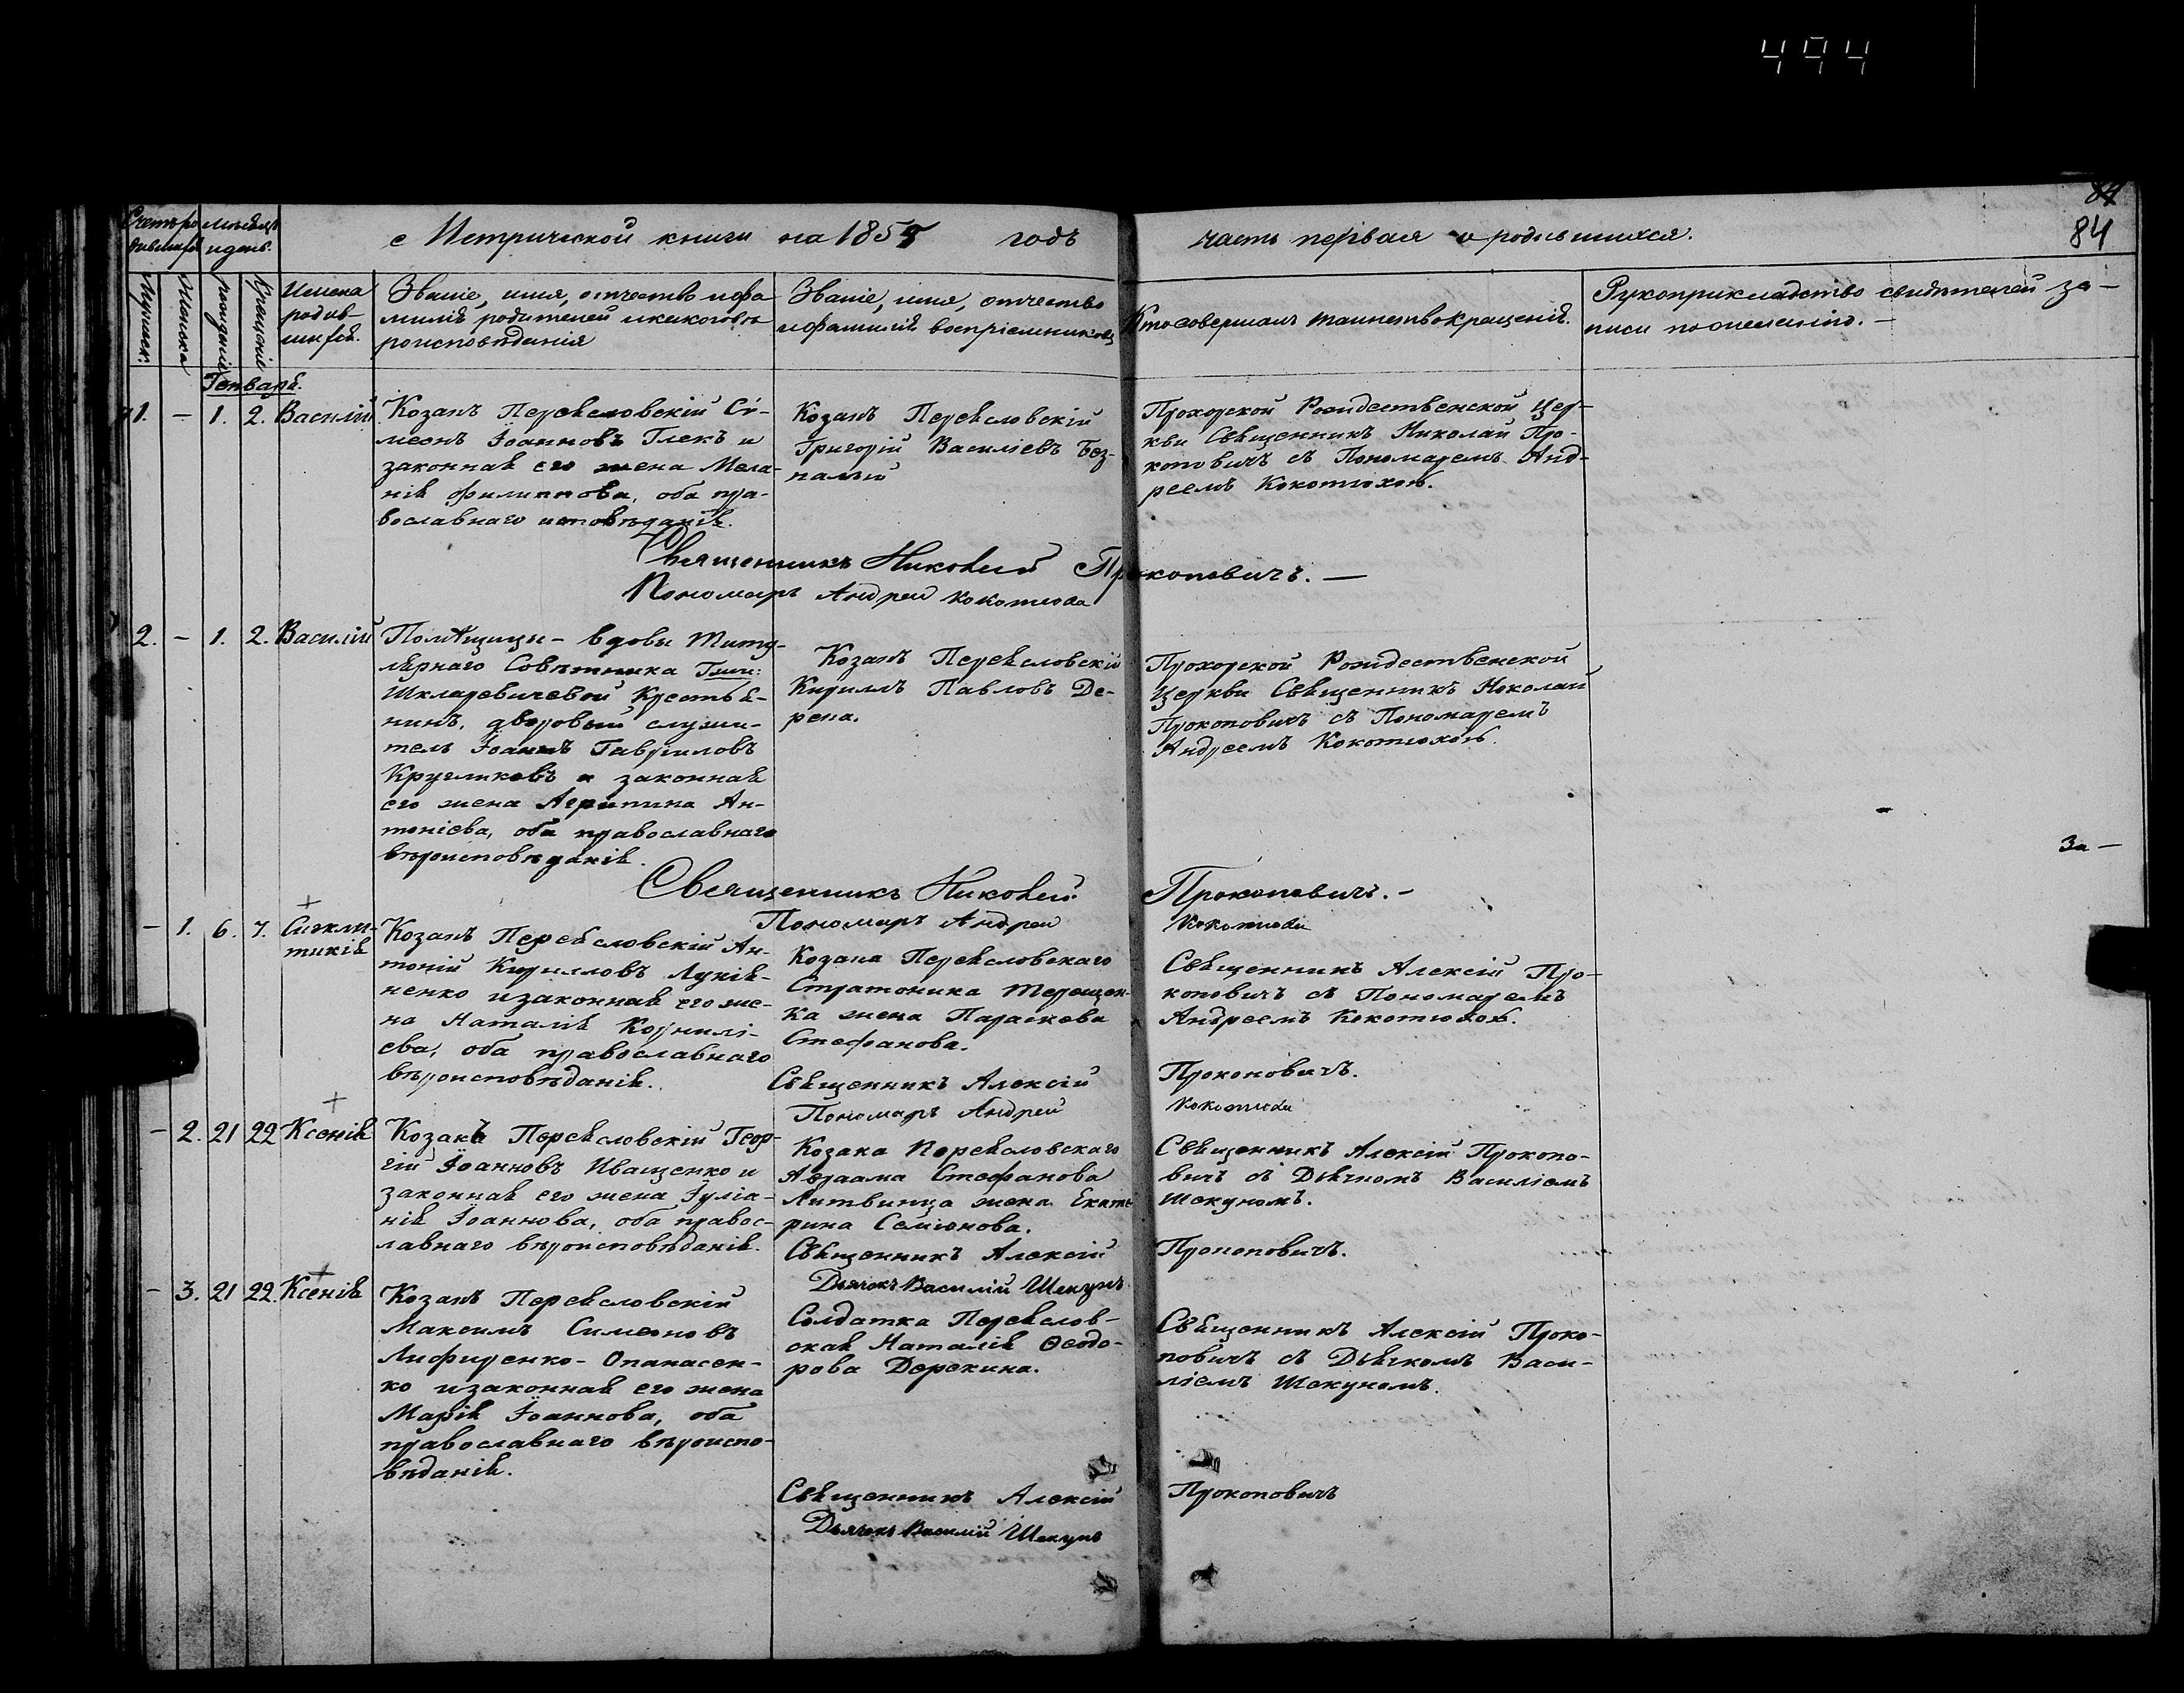 494
84
84
Счетъ ро
дившихся
Мѣсяцъ
и день.
с Метрической книги на 1855 годъ часть первая о родившихся.
Мужеск.
Женска
рожденія
Крещенія
Имена
родив-
шихся.
Званіе, имя, отчество и фа
милія родителей и какого вѣ
роисповѣданія
Званіе, имя, отчество
и фамилія воспріемниковъ
Кто совершалъ таинство Крещенія.
Рукоприкладство свидѣтелей за-
писи по желанію. —
Генваря.
1. — 1. 2. Василій
Козакъ Переясловскій Си-
меонъ Іоанновъ Глекъ и
законная его жена Мела-
нія Филиппова, оба пра-
вославнаго исповѣданія.
Козакъ Переясловскій
Григорій Василіевъ Без-
палый
Прохорской Рождественской Цер-
кви Священникъ Николай Про-
коповичъ съ Пономаремъ Анд-
реемъ Кокотюхою.
Священникъ Николай Прокоповичъ. —
Пономаръ Андрей Кокотюха
2. — 1. 2. Василій
Помѣщицы - вдовы Титу-
лярнаго Совѣтника
Шкларевичевой Крестья-
нинъ, дворовый служи-
тель Іоаннъ Гавриловъ
Кругликовъ и законная
его жена Агрипина Ан-
тоніева, оба православнаго
вѣроисповѣданія.
Козакъ Переясловскій
Кирилъ Павловъ Де-
река.
Прохорской Рождественской
Церкви Священникъ Николай
Прокоповичъ съ Пономаремъ
Андреемъ Кокотюхою.
За —
Священникъ Николай Прокоповичъ. —
Пономаръ Андрей Кокотюха
— 1. 6. 7. Сигкли-
тикія
Козакъ Переясловскій Ан-
тоній Кирилловъ Лукія-
ненко и законная его же-
на Наталія Корнилі-
ева, оба православнаго
вѣроисповѣданія.
Козака Переясловскаго
Стратоника Терещен-
ка жена Параскева
Стефанова.
Священникъ Алексій Про-
коповичъ съ Пономаремъ
Андреемъ Кокотюхою.
Священникъ Алексій Прокоповичъ.
Пономаръ Андрей Кокотюха
— 2. 21 22 Ксенія
Козакъ Переясловскій Геор-
гій Іоанновъ Иващенко и
законная его жена Іуліа-
нія Іоаннова, оба правос-
лавнаго вѣроисповѣданія.
Козака Переясловскаго
Авраама Стефанова
Литвинца жена Екате
рина Семіонова.
Священникъ Алексій Прокопо-
вичъ съ Дьячкомъ Василіемъ
Шекуномъ.
Священникъ Алексій Прокоповичъ.
Дьячокъ Василій Шекунъ
— 3. 21 22. Ксенія
Козакъ Переясловскій
Максимъ Симеоновъ
Лифиренко - Опанасен-
ко и законная его жена
Марія Іоаннова, оба
православнаго вѣроиспо-
вѣданія.
Солдатка Переяслов-
ская Наталія Ѳеодо-
рова Дерекина.
Священникъ Алексій Проко-
повичъ съ Дьячкомъ Васи-
ліемъ Шекуномъ.
Священникъ Алексій Прокоповичъ
Дьячокъ Василій Шекунъ